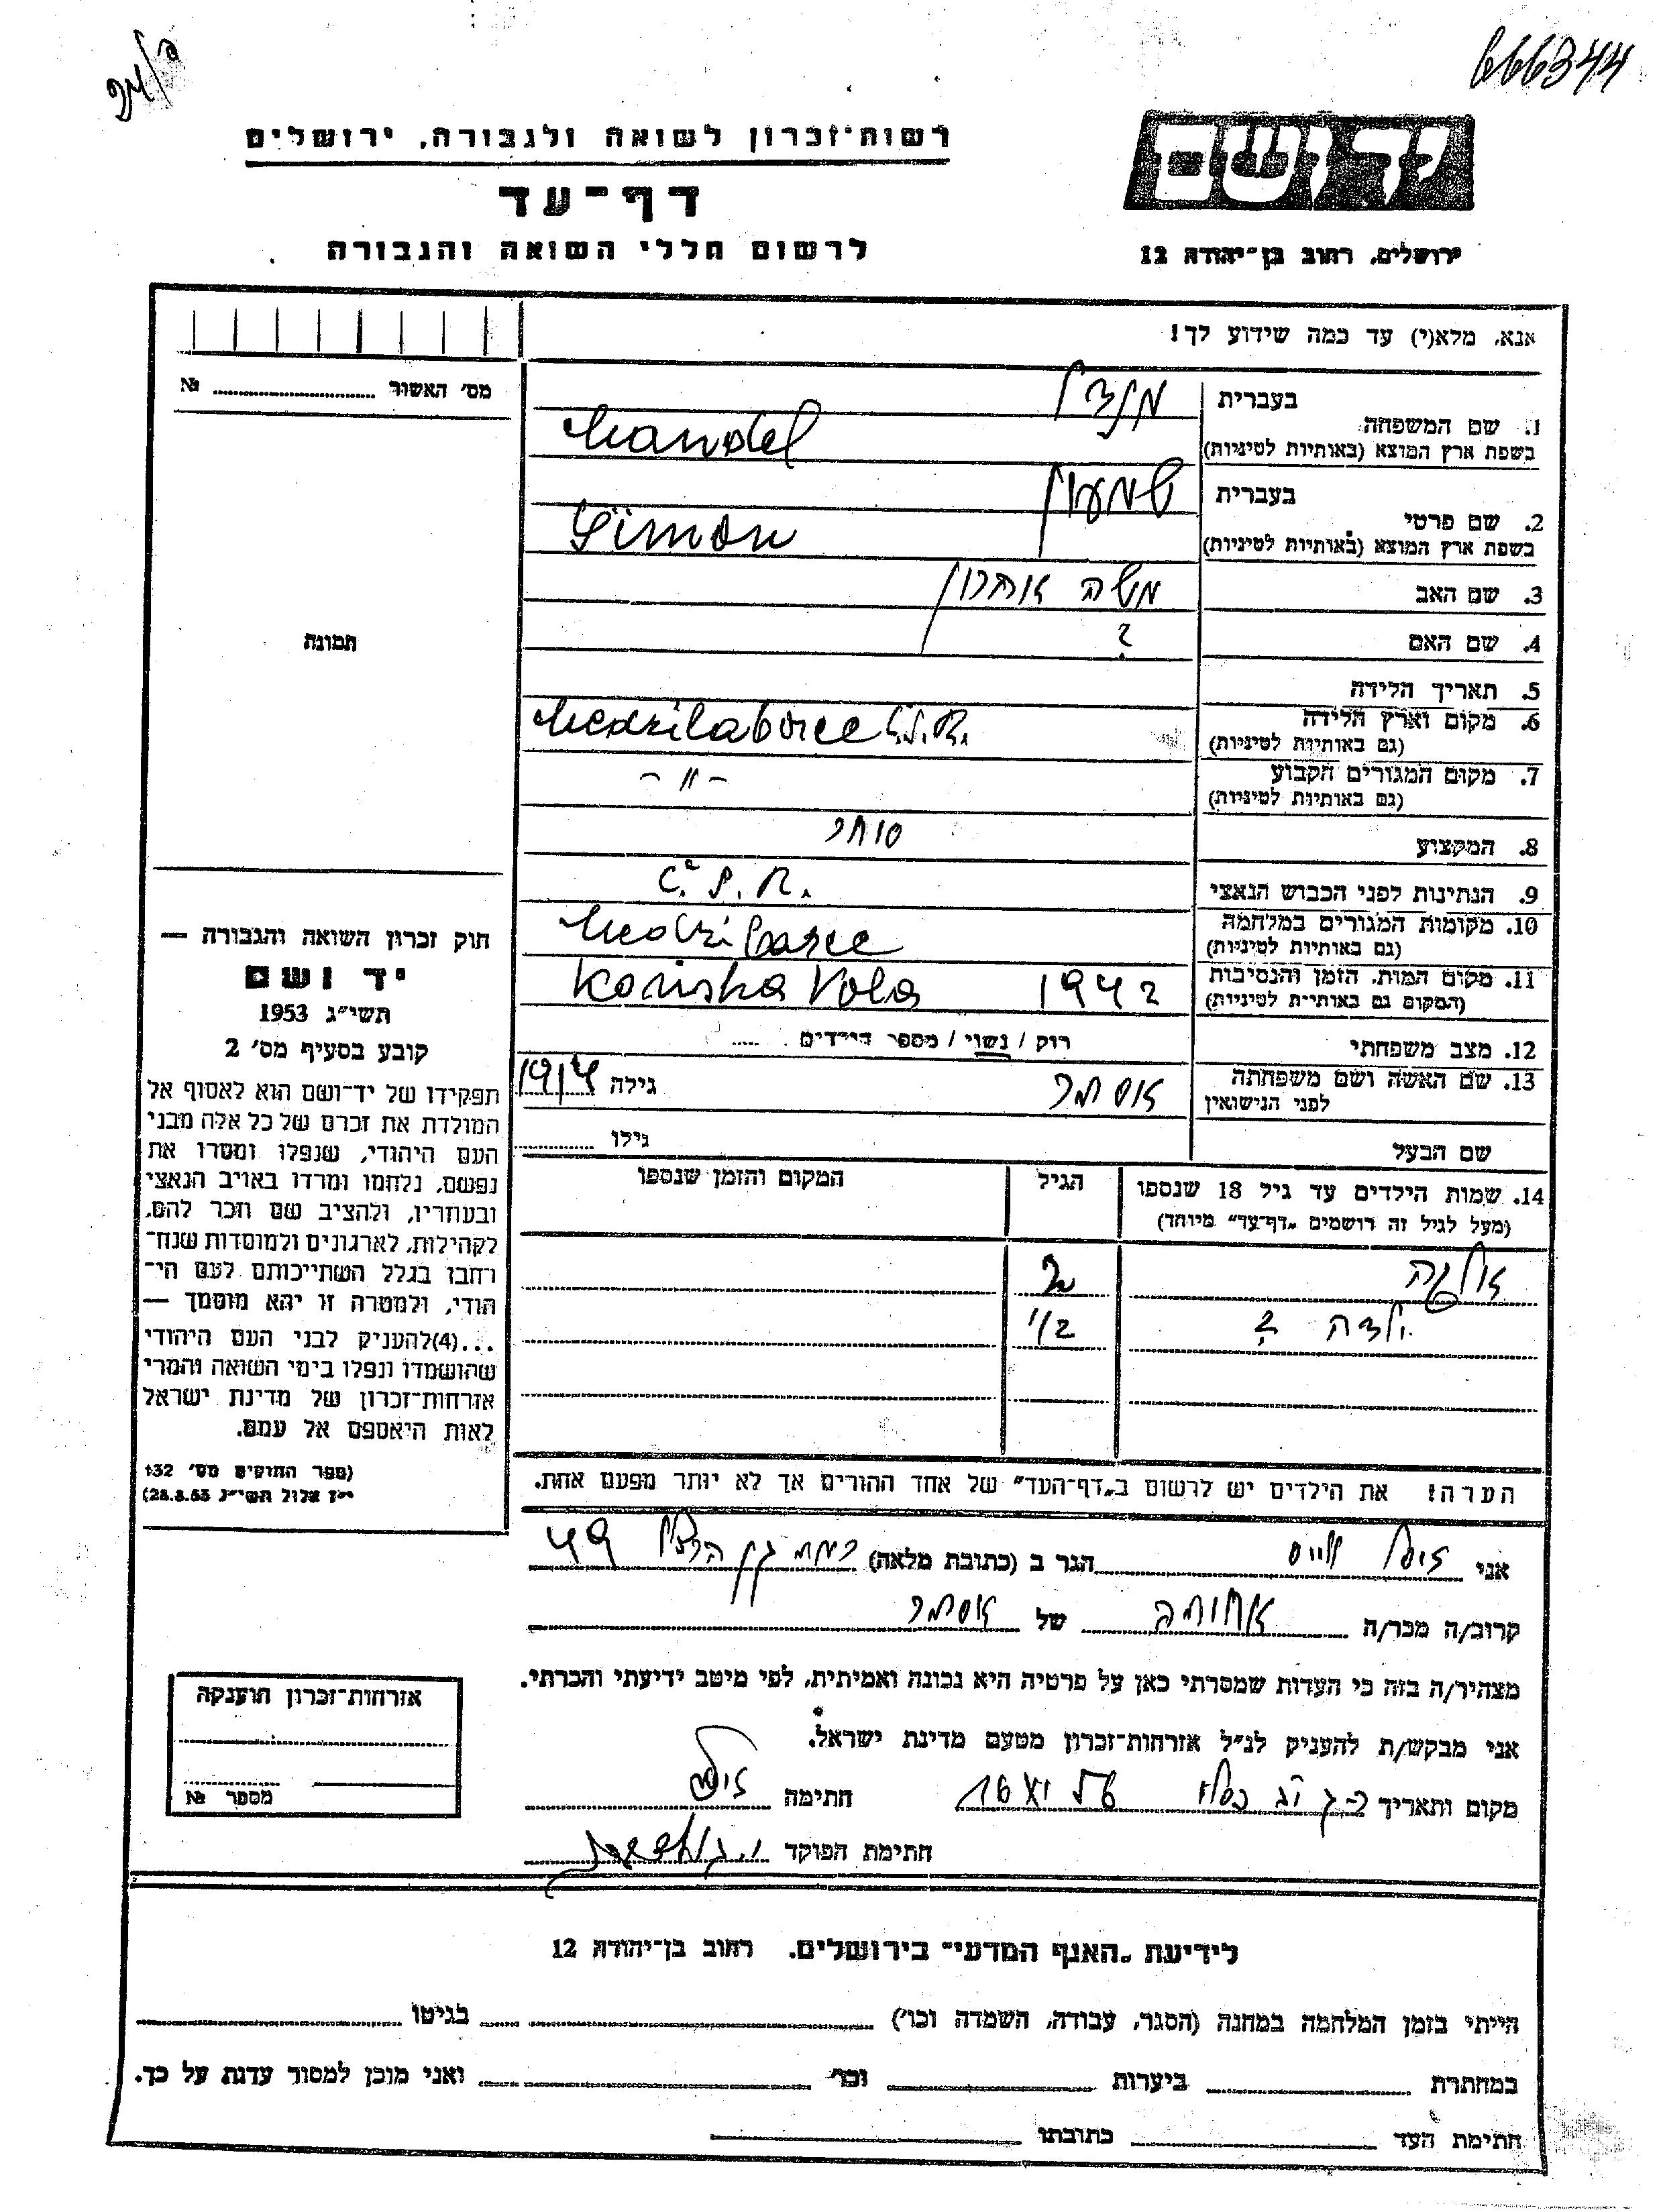 666344
רשות־זכרון לשואה ולגבורה, ירושלים
יד ושם
דף־עד
לרשום חללי השואה והגבורה
ירושלים, רחוב בן־יהודה 12
אנא, מלא(י) עד כמה שידוע לך!
מס׳ האשור № 
בעברית מנדל
1. שם המשפחה
בשפת ארץ המוצא (באותיות לטיניות) Mandel
בעברית שמעון
2. שם פרטי
בשפת ארץ המוצא (באותיות לטיניות) Simon
3. שם האב משה אהרון
4. שם האם ?
תמונה
5. תאריך הלידה
6. מקום וארץ הלידה Medzilaborce Č.S.R.
(גם באותיות לטיניות)
7. מקום המגורים הקבוע -״-
(גם באותיות לטיניות)
8. המקצוע סוחר
9. הנתינות לפני הכבוש הנאצי Č.S.R.
10. מקומות המגורים במלחמה
(גם באותיות לטיניות)
11. מקום המות, הזמן והנסיבות 1942 Konska Vola
(המקום גם באותיות לטיניות)
12. מצב משפחתי רוק / נשוי / מספר הילדים
13. שם האשה ושם משפחתה אסתר גילה 1914
לפני הנישואין
שם הבעל גילו
14. שמות הילדים עד גיל 18 שנספו הגיל המקום והזמן שנספו
(מעל לגיל זה רושמים „דף־עד״ מיוחד)
אולגה
ילדה ? 1/2
הערה! את הילדים יש לרשום ב„דף־העד״ של אחד ההורים אך לא יותר מפעם אחת.
חוק זכרון השואה והגבורה —
יד ושם
תשי״ג 1953
קובע בסעיף מס׳ 2
תפקידו של יד־ושם הוא לאסוף אל
המולדת את זכרם של כל אלה מבני
העם היהודי, שנפלו ומסרו את
נפשם, נלחמו ומרדו באויב הנאצי
ובעוזריו, ולהציב שם וזכר להם,
לקהילות, לארגונים ולמוסדות שנח־
רבו בגלל השתייכותם לעם הי־
הודי, ולמטרה זו יהא מוסמך —
...(4) להעניק לבני העם היהודי
שהושמדו ונפלו בימי השואה והמרי
אזרחות־זכרון של מדינת ישראל
לאות היאספם אל עמם.
(ספר החוקים מס׳ 132
י״ז אלול תשי״ג 28.8.53)
אני וייס הגר ב (כתובת מלאה) רמת גן הרצל 49
קרוב/ה מכר/ה אחותה של אסתר
מצהיר/ה בזה כי העדות שמסרתי כאן על פרטיה היא נכונה ואמיתית, לפי מיטב ידיעתי והכרתי.
אני מבקש/ת להעניק לנ״ל אזרחות־זכרון מטעם מדינת ישראל.
מקום ותאריך חתימה
חתימת הפוקד
אזרחות־זכרון הוענקה
מספר №
לידיעת „האגף המדעי״ בירושלים, רחוב בן־יהודה 12
הייתי בזמן המלחמה במחנה (הסגר, עבודה, השמדה וכו׳) בגיטו
במחתרת ביערות וכו׳ ואני מוכן למסור עדות על כך.
חתימת העד כתובתו